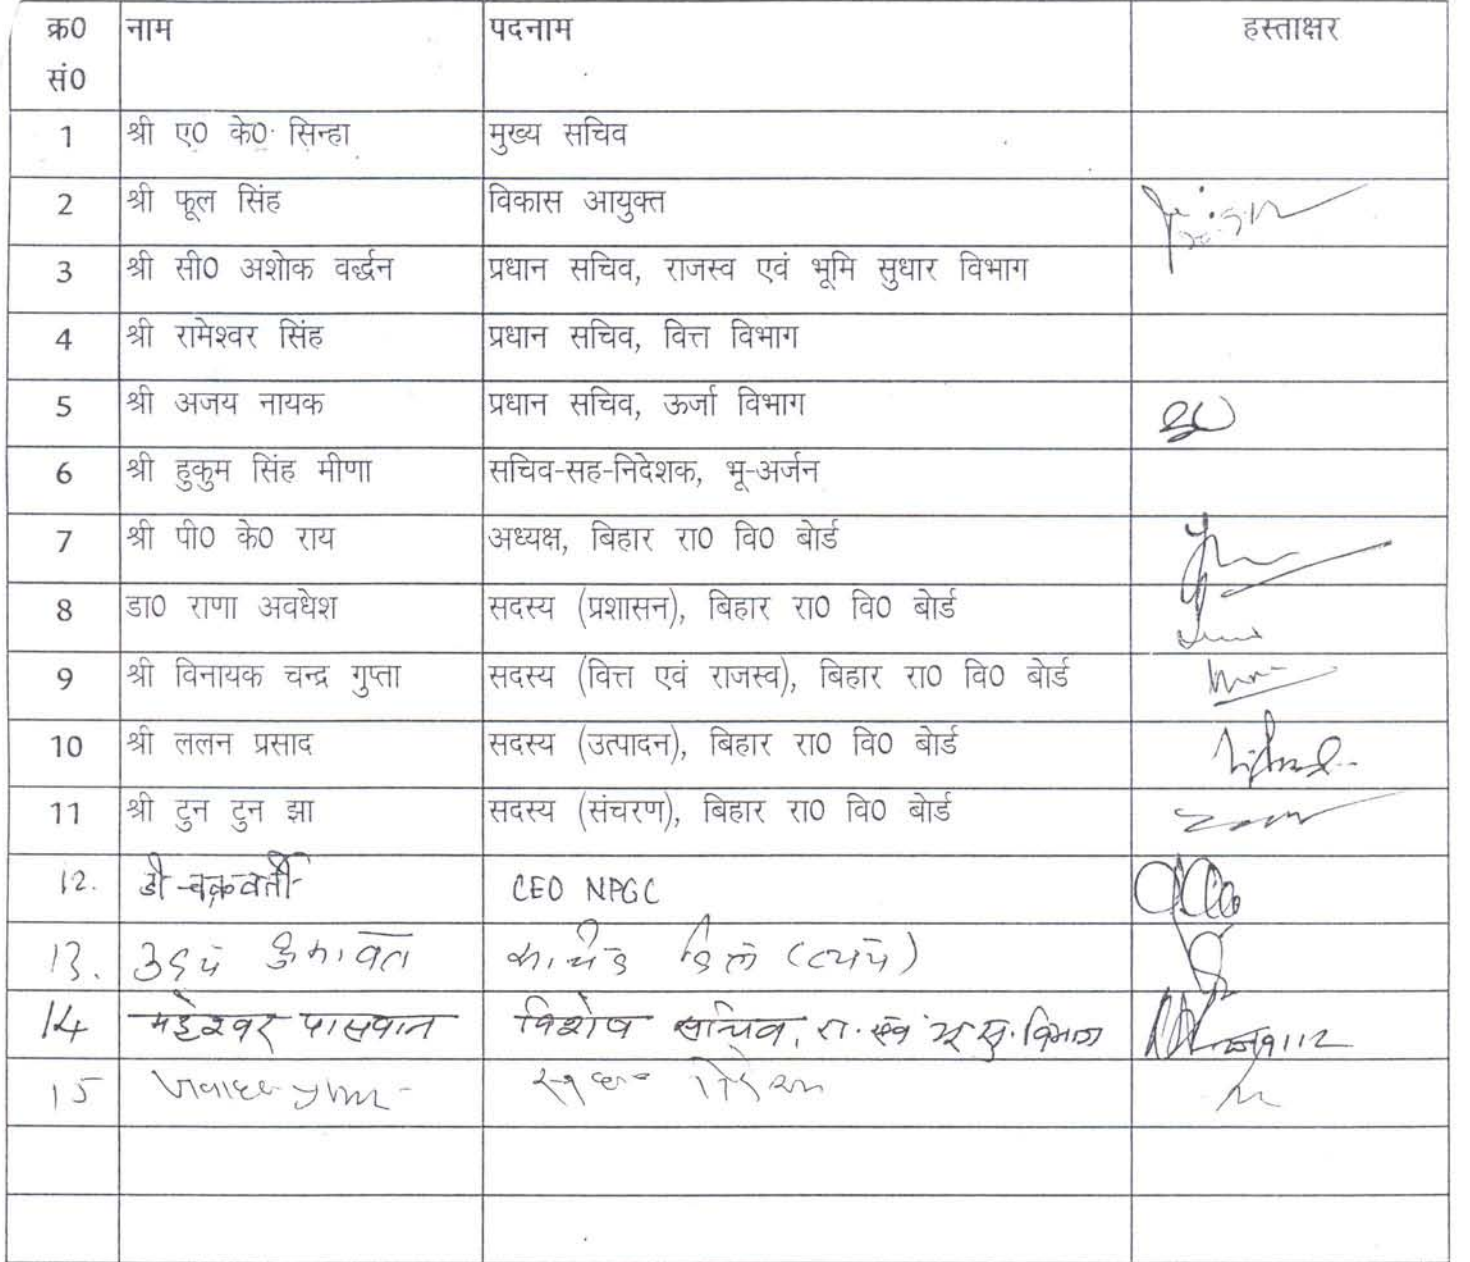 क्र0 नाम पदनाम हस्ताक्षर
सं0
1 श्री ए0 के0 सिन्हा मुख्य सचिव
2 श्री फूल सिंह विकास आयुक्त
3 श्री सी0 अशोक वर्द्धन प्रधान सचिव, राजस्व एवं भूमि सुधार विभाग
4 श्री रामेश्वर सिंह प्रधान सचिव, वित्त विभाग
5 श्री अजय नायक प्रधान सचिव, ऊर्जा विभाग
6 श्री हुकुम सिंह मीणा सचिव-सह-निदेशक, भू-अर्जन
7 श्री पी0 के0 राय अध्यक्ष, बिहार रा0 वि0 बोर्ड
8 डा0 राणा अवधेश सदस्य (प्रशासन), बिहार रा0 वि0 बोर्ड
9 श्री विनायक चन्द्र गुप्ता सदस्य (वित्त एवं राजस्व), बिहार रा0 वि0 बोर्ड
10 श्री ललन प्रसाद सदस्य (उत्पादन), बिहार रा0 वि0 बोर्ड
11 श्री टुन टुन झा सदस्य (संचरण), बिहार रा0 वि0 बोर्ड
12. डी चक्रवर्ती CEO NPGC
13.
14 महेश्वर पासवान विशेष सचिव, रा. एवं भू सु. विभाग
15